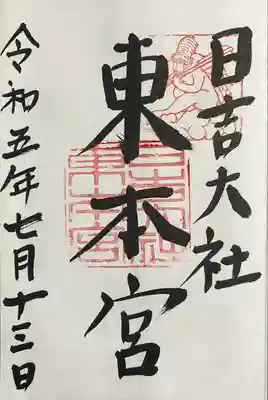 日吉大社
東本宮
令和五年七月十三日